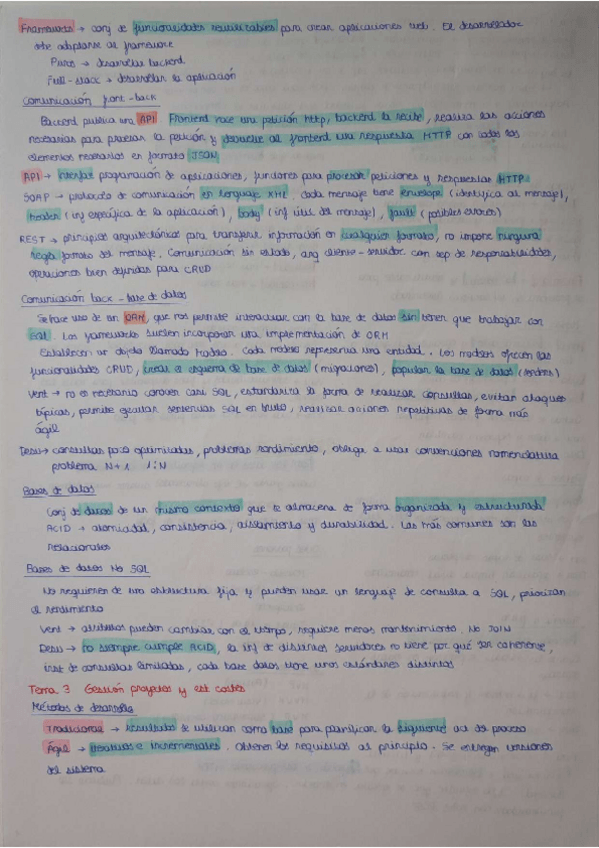 Framework → conj de funcionalidades reutilizables para crear aplicaciones web. El desarrollador
debe adaptarse al framework
Puros → desarrollar backend
Full-stack → desarrollar la aplicación
Comunicación front-back
Backend publica una API Frontend hace una petición http, backend la recibe, realiza las acciones
necesarias para procesar la petición y devuelve al frontend una respuesta HTTP con todos los
elementos necesarios en formato JSON
API → interfaz programación de aplicaciones, funciones para procesar peticiones y respuestas HTTP
SOAP → protocolo de comunicación en lenguaje XML. Cada mensaje tiene envelope (identifica al mensaje),
header (inf específica de la aplicación), body (inf útil del mensaje), fault (posibles errores)
REST → principios arquitectónicos para transferir información en cualquier formato, no impone ninguna
regla formato del mensaje. Comunicación sin estado, arq cliente-servidor con sep de responsabilidades,
operaciones bien definidas para CRUD
Comunicación back-base de datos
Se hace uso de un ORM, que nos permite interactuar con la base de datos sin tener que trabajar con
SQL. Los frameworks suelen incorporar una implementación de ORM
Establecen un objeto llamado modelo. Cada modelo representa una entidad. Los modelos ofrecen las
funcionalidades CRUD, crear el esquema de base de datos (migraciones), popular la base de datos (seeders)
Vent → no es necesario conocer casi SQL, estandariza la forma de realizar consultas, evitan ataques
típicos, permite ejecutar sentencias SQL en bruto, realizar acciones repetitivas de forma más
ágil
Desv → consultas poco optimizadas, problemas rendimiento, obliga a usar convenciones nomenclatura
problema N+1 1:N
Bases de datos
Conj de datos de un mismo contexto que se almacena de forma organizada y estructurada
ACID → atomicidad, consistencia, aislamiento y durabilidad. Las más comunes son las
relacionales
Bases de datos No SQL
No requieren de una estructura fija y pueden usar un lenguaje de consulta a SQL, priorizan
el rendimiento
Vent → atributos pueden cambiar con el tiempo, requiere menos mantenimiento. No JOIN
Desv → no siempre cumple ACID, la inf de distintos servidores no tiene por qué ser coherente,
inst de consultas limitadas, cada base datos tiene unos estándares distintos
Tema 3 Gestión proyectos y est costes
Métodos de desarrollo
Tradicional → resultados se utilizan como base para planificar la siguiente act del proceso
Ágil → iterativas e incrementales. Obtienen los requisitos al principio. Se entregan versiones
del sistema